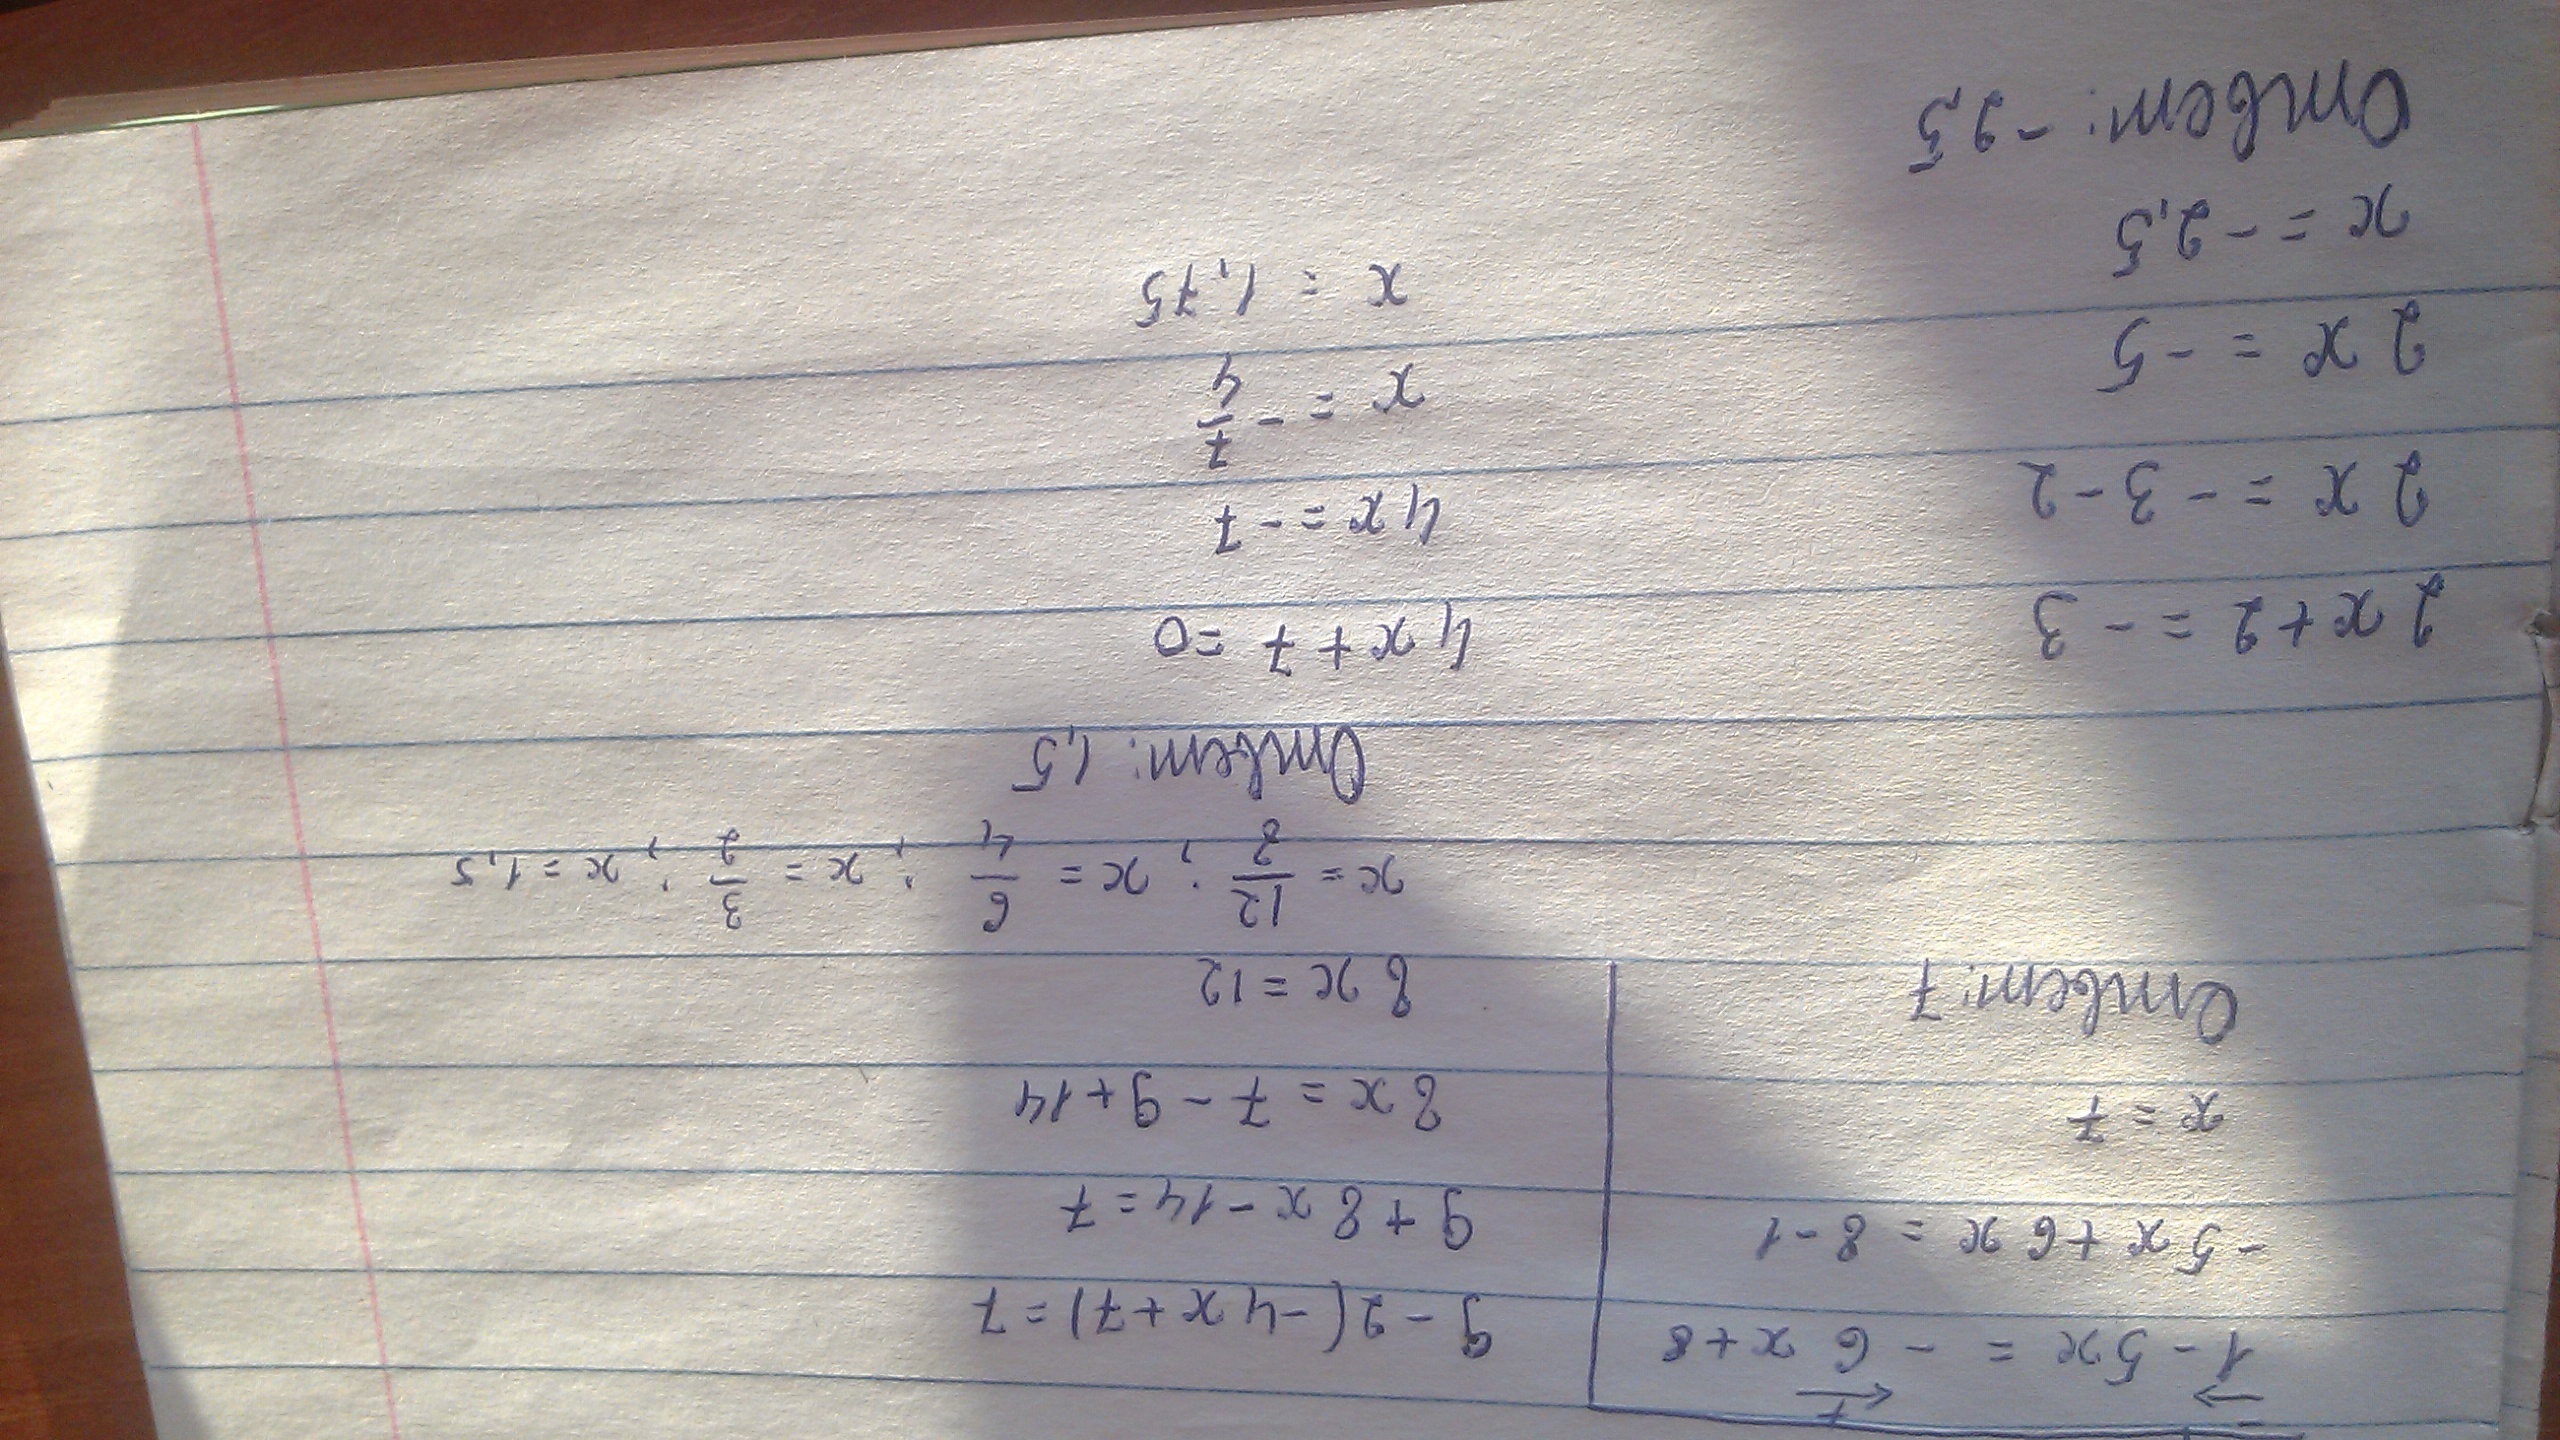 1 - 5x = - 6x + 8
-5x + 6x = 8 - 1
x = 7
Ответ: 7
9 - 2(-4x + 7) = 7
9 + 8x - 14 = 7
8x = 7 - 9 + 14
8x = 12
x = 12/8 ; x = 6/4 ; x = 3/2 ; x = 1,5
Ответ: 1,5
2x + 2 = - 3
2x = - 3 - 2
2x = - 5
x = - 2,5
Ответ: - 2,5
4x + 7 = 0
4x = - 7
x = - 7/4
x = 1,75